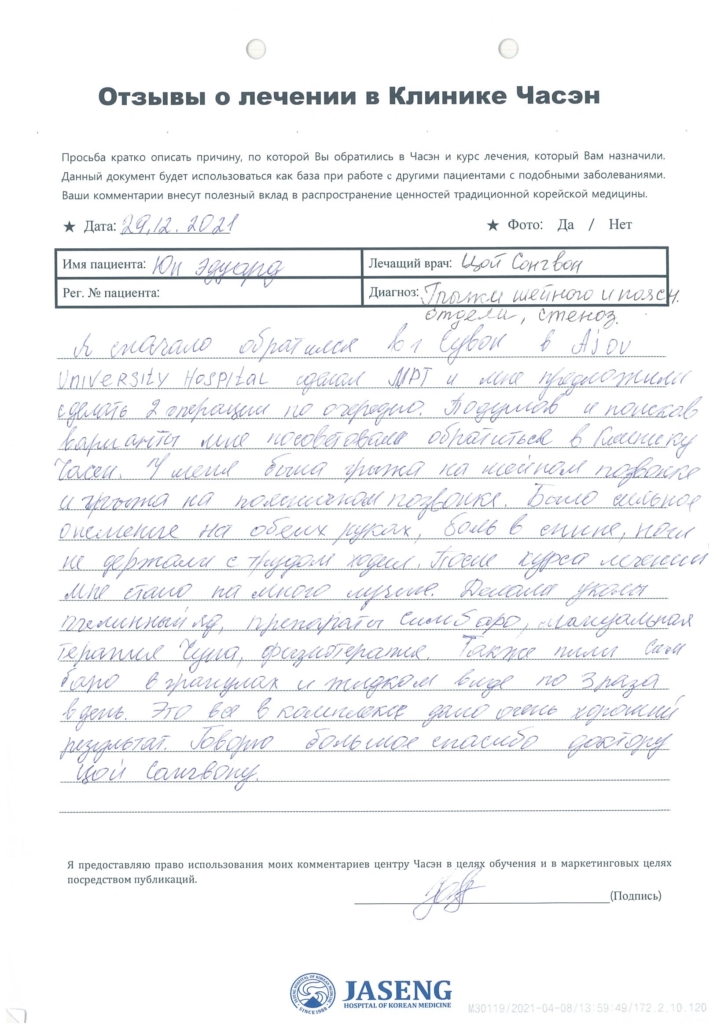 Отзывы о лечении в Клинике Часэн
Просьба кратко описать причину, по которой Вы обратились в Часэн и курс лечения, который Вам назначили.
Данный документ будет использоваться как база при работе с другими пациентами с подобными заболеваниями.
Ваши комментарии внесут полезный вклад в распространение ценностей традиционной корейской медицины.
★ Дата: 29.12.2021 ★ Фото: Да / Нет
Имя пациента: Юн Эдуард Лечащий врач: Цой Сонгвон
Рег. № пациента: Диагноз: Грыжи шейного и поясн.
отдели, стеноз.
Я сначало обратился в г Сувон в Ajou
University Hospital сделал МРТ и мне предложили
сделать 2 операции по очередно. Подумов и поискав
варианты мне посоветовали обратиться в Клинику
Часен. У меня была грыжа на шейном позвонке
и грыжа на поясничном позвонке. Было сильное
онемение на обеих руках, боль в спине, ноги
не держали с трудом ходил. После курса лечений
мне стало на много лучше. Делали уколы
пчелинный яд, препараты Симбаро, мануальная
терапия Чуна, физиотерапия. Также пили Сим
баро в гранулах и жидком виде по 3 раза
в день. Это все в комплексе дало очень хороший
результат. Говорю большое спасибо доктору
Цой Сангвону.
Я предоставляю право использования моих комментариев центру Часэн в целях обучения и в маркетинговых целях
посредством публикаций.
(Подпись)
JASENG
HOSPITAL OF KOREAN MEDICINE
SINCE 1988
M30119/2021-04-08/13:59:49/172.2.10.120